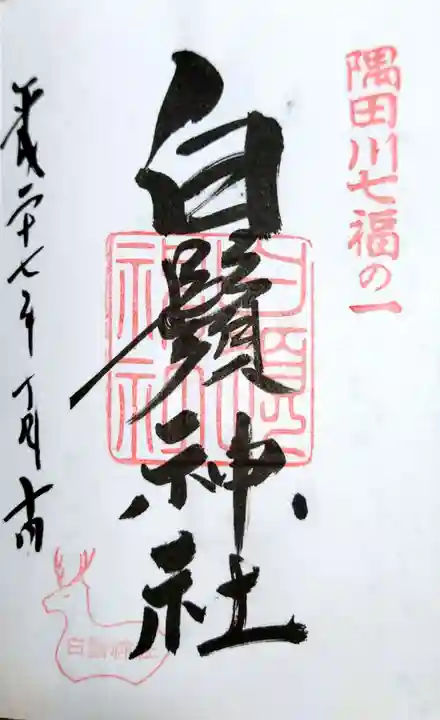 隅田川七福の一
白鬚神社
白鬚神社
平成二十七年
白鬚神社